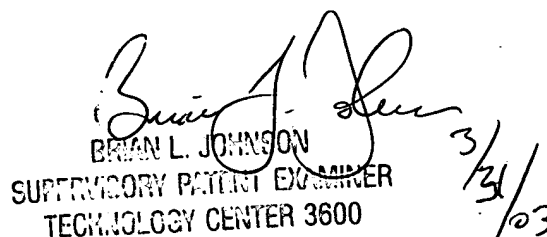 BRIAN L. JOHNSON
SUPERVISORY PATENT EXAMINER
TECHNOLOGY CENTER 3600
3/31/03